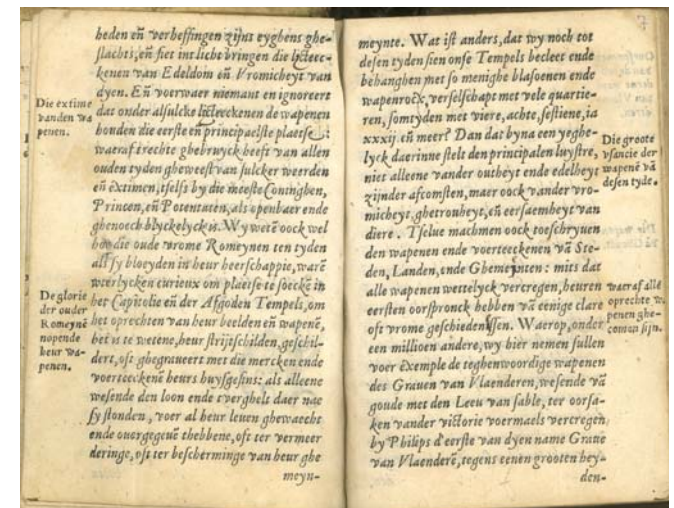 heden eñ verheffingen zijns eyghens ghe-
slachts, eñ siet int licht bringen die lijcteec-
kenen van Edeldom eñ Vromicheyt van
dyen. Eñ voorwaer niemant en ignoreert
dat onder alsulcke lijcteeckenen de wapenen
houden die eerste eñ principaelste plaetse:
waeraf t'rechte ghebruyck heeft van allen
ouden tyden gheweest van sulcker weerden
eñ extimen, tselfs by die meeste Coninghen,
Princen, eñ Potentaten, als openbaer ende
ghenoech blyckelyck is. Wy wetē oock wel
hoe die oude vrome Romeynen ten tyden
als sy bloeyden in heur heerschappie, warē
weerlycken curieux om plaetse te soeckē in
het Capitolie eñ der Afgoden Tempels, om
het oprechten van heur beelden eñ wapenē,
het is te wetene, heur strijtschilden, geschil-
dert, oft ghegraueert met die mercken ende
voorteeckenē heurs huysgesins: als alleene
wesende den loon ende t'verghelt daer nae
sy stonden, voer al heur leuen ghewaecht
ende ouergegeuē thebbene, oft ter vermeer
deringe, oft ter bescherminge van heur ghe
meyn-
Die extime
vanden wa
penen.
De glorie
der ouder
Romeynē
nopende
heur wa-
penen.
meynte. Wat ist anders, dat wy noch tot
desen tyden sien onse Tempels becleet ende
behanghen met so menighe blasoenen ende
wapenrocx, verselschapt met vele quartie-
ren, somtyden met viere, achte, sestiene, ia
xxxij. eñ meer? Dan dat byna een yeghe-
lyck daerinne stelt den principalen luystre,
niet alleene vander outheyt ende edelheyt
zijnder afcomsten, maer oock vander vro-
micheyt, ghetrouheyt, eñ eersaemheyt van
diere. Tselue machmen oock toeschryuen
den wapenen ende voorteeckenen vā Ste-
den, Landen, ende Ghemeynten: mits dat
alle wapenen wettelyck vercregen, heuren
eersten oorspronck hebben vā eenige clare
oft vrome geschiedenissen. Waerop, onder
een millioen andere, wy hier nemen sullen
voer exemple de teghenwoordige wapenen
des Grauen van Vlaenderen, wesende vā
goude met den Leeu van sable, ter oorsa-
ken vander victorie voermaels vercregen,
by Philips d'eerste van dyen name Graue
van Vlaenderē, tegens eenen grooten hey-
den-
Die groote
vsancie der
wapenē vā
desen tyde.
waeraf alle
oprechte w.
penen ghe-
comen sijn.